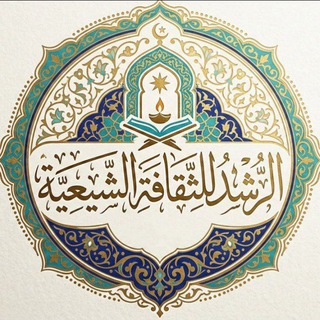 الرُّشْدُ لِلثَّقَافَةِ الشِّيعِيَّةِ